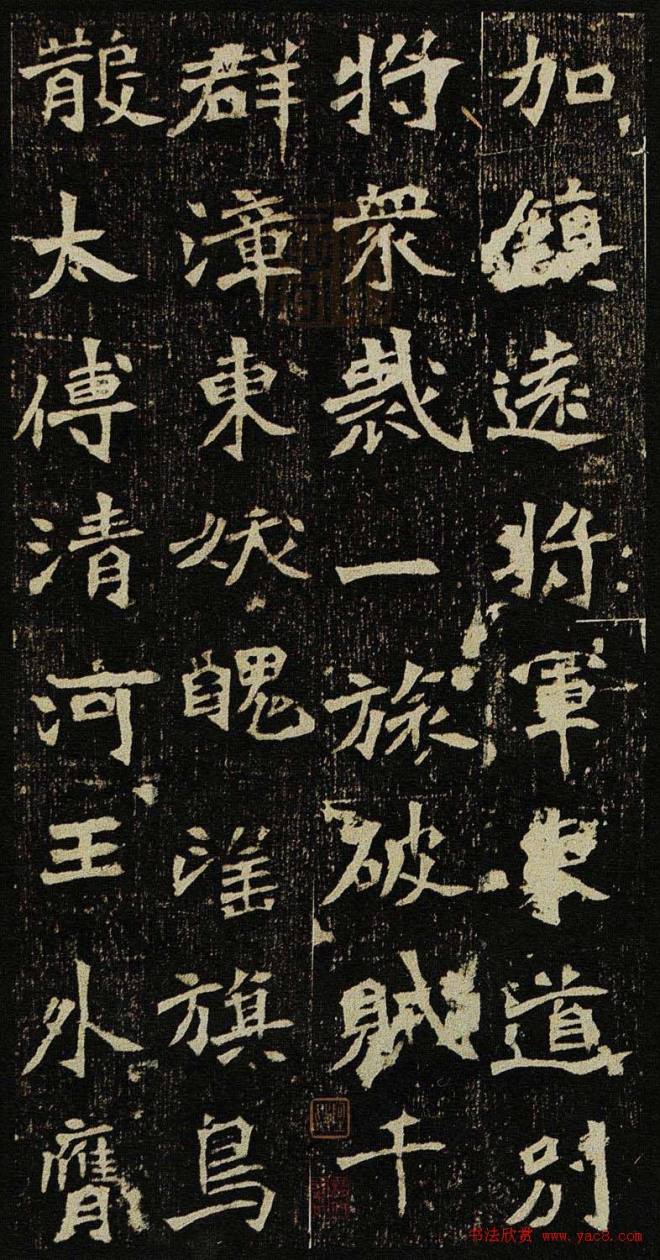 加鎮遠將軍東道別
將衆裁一旅破賊千
群漳東妖醜淫旗鳥
散太傅清河王外膺
书法欣赏 www.yac8.com